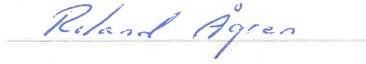 Roland Ågren